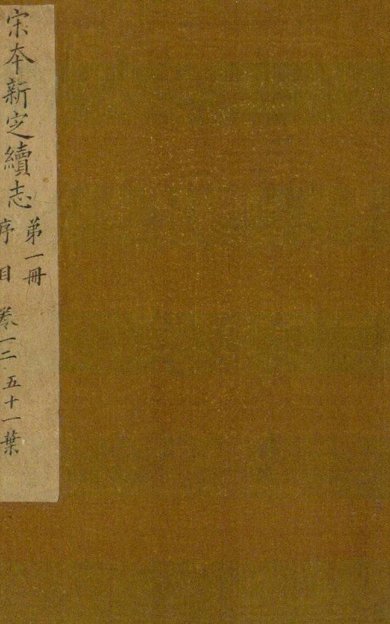 宋本新定續志
弟一冊
序目 卷一二 五十一葉